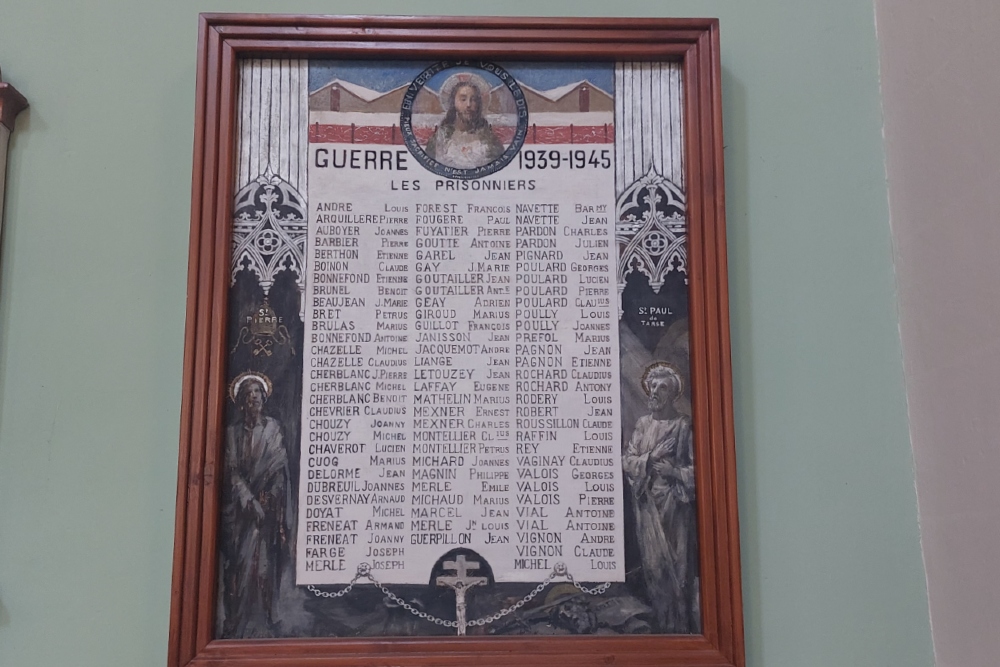 EN VERITE JE VOUS LE DIS
N'EST JAMAIS VAIN
GUERRE 1939-1945
LES PRISONNIERS
ANDRE Louis
ARQUILLERE Pierre
AUBOYER Joannes
BARBIER Pierre
BERTHON Etienne
BOINON Claude
BONNEFOND Etienne
BRUNEL Benoit
BEAUJEAN J.Marie
BRET Petrus
BRULAS Marius
BONNEFOND Antoine
CHAZELLE Michel
CHAZELLE Claudius
CHERBLANC J.Pierre
CHERBLANC Michel
CHERBLANC Benoit
CHEVRIER Claudius
CHOUZY Joanny
CHOUZY Michel
CHAVEROT Lucien
CUOG Marius
DELORME Jean
DUBREUIL Joannes
DESVERNAY Arnaud
DOYAT Michel
FRENEAT Armand
FRENEAT Joanny
FARGE Joseph
MERLE Joseph
FOREST François
FOUGERE Paul
FUYATIER Pierre
GOUTTE Antoine
GAREL Jean
GAY J.Marie
GOUTAILLER Jean
GOUTAILLER Ant.e
GEAY Adrien
GIROUD Marius
GUILLOT François
JANISSON Jean
JACQUEMOT Andre
LIANGE Jean
LETOUZEY Jean
LAFFAY Eugene
MATHELIN Marius
MEXNER Ernest
MEXNER Charles
MONTELLIER Cl.ius
MONTELLIER Petrus
MICHARD Joannes
MAGNIN Philippe
MERLE Emile
MICHAUD Marius
MARCEL Jean
MERLE Jn Louis
GUERPILLON Jean
NAVETTE Barmy
NAVETTE Jean
PARDON Charles
PARDON Julien
PIGNARD Jean
POULARD Georges
POULARD Lucien
POULARD Pierre
POULARD Claudius
POULLY Louis
POULLY Joannes
PREFOL Marius
PAGNON Jean
PAGNON Etienne
ROCHARD Claudius
ROCHARD Antony
RODERY Louis
ROBERT Jean
ROUSSILLON Claude
RAFFIN Louis
REY Etienne
VAGINAY Claudius
VALOIS Georges
VALOIS Louis
VALOIS Pierre
VIAL Antoine
VIAL Antoine
VIGNON Andre
VIGNON Claude
MICHEL Louis
St
PIERRE
St PAUL
de
TARSE